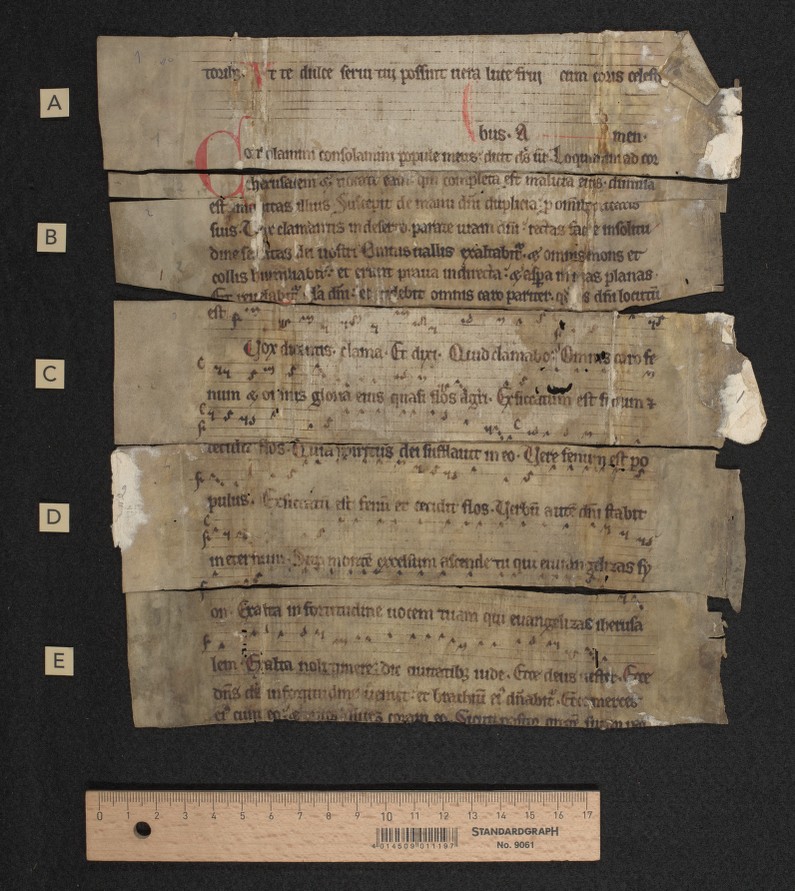 A
torib⁊. Ut te dulce serui tui possint uera luce frui cum coris celesti
bus. A men.
Consolamini consolamini popule meus: dicit ds̄ ur̄. Loquimini ad cor
iherusalem & uocate eam: qui completa est malicia eius: dimissa
B
est iniquitas illius. Suscepit de manu dn̄i duplicia: p omnibus peccatis
suis. Vox clamantis in deserto. parate uiam dn̄i: rectas facite in solitu
dine semitas dei nostri. Omnis uallis exaltabit᷑. & omnis mons et
collis humiliabit᷑: et erunt praua in directa: & asp̄a in uias planas.
Et reuelabit᷑ gl̄a dn̄i: et uidebit omnis caro pariter. dn̄i locutū
est
C
Vox dicentis. clama. Et dixi. Quid clamabo: Omnis caro fe
num & omnis gloria eius quasi flos agri. Exsiccatum est fenum ⁊
D
cecidit flos. Quia spiritus dei sufflauit in eo. Vere fenum est po
pulus. Exsiccatū est fenū et cecidit flos. Verbū autē dn̄i stabit
in eternum. Sup montē excelsum ascende tu qui euuangelizas sy
E
on. Exalta in fortitudine uocem tuam qui euangelizas iherusa
lem. Exalta noli timere: dic ciuitatib⁊ iude. Ecce deus uester. Ecce
dn̄s ds̄ in fortitudine ueniet: et brachiū ei᷒ dn̄abit᷑. Ecce merces
ei᷒ cum eo: coram eo. Sicut pastor
0 1 2 3 4 5 6 7 8 9 10 11 12 13 14 15 16 17
4 014509 011197
STANDARDGRAPH
No. 9061